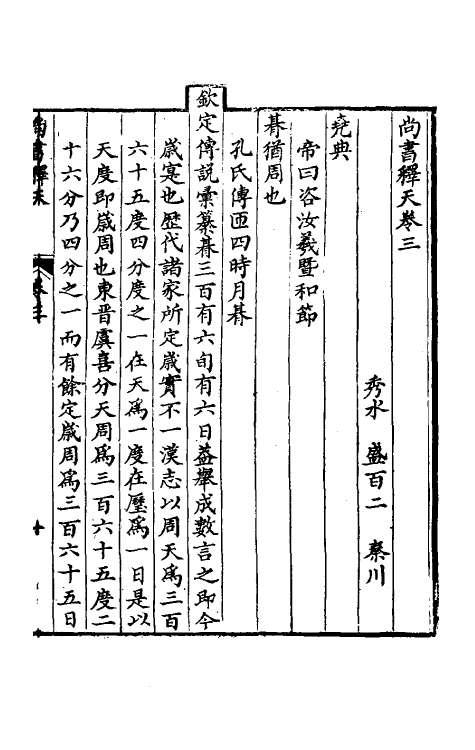 尚書釋天卷三
秀水 盛百二 秦川
堯典
帝曰咨汝羲暨和節
朞猶周也
孔氏傳匝四時月朞
欽定傳說彙纂朞三百有六旬有六日葢舉成數言之即今
歲寔也歷代諸家所定歲實不一漢志以周天爲三百
六十五度四分度之一在天爲一度在厯爲一日是以
天度即歲周也東晋虞喜分天周爲三百六十五度二
十六分乃四分之一而有餘定歲周爲三百六十五日
尚書釋天 卷三 十